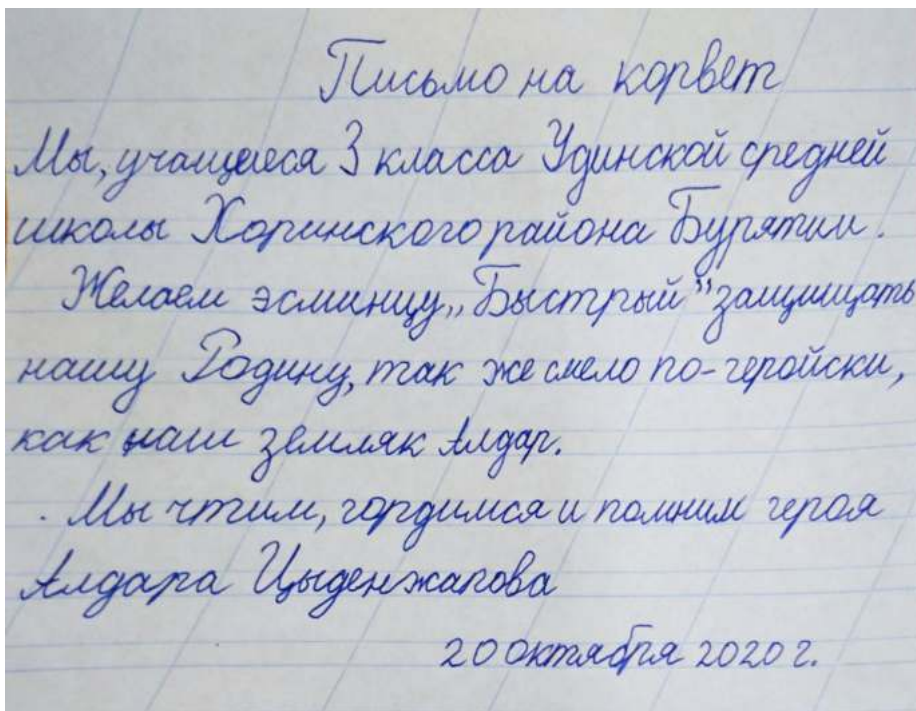 Письмо на корвет
Мы, учащиеся 3 класса Удинской средней
школы Хоринского района Бурятии.
Желаем эсминцу „Быстрый” защищать
нашу Родину, так же смело по-геройски,
как наш земляк Алдар.
. Мы чтим, гордимся и помним героя
Алдара Цыденжапова
20 октября 2020 г.